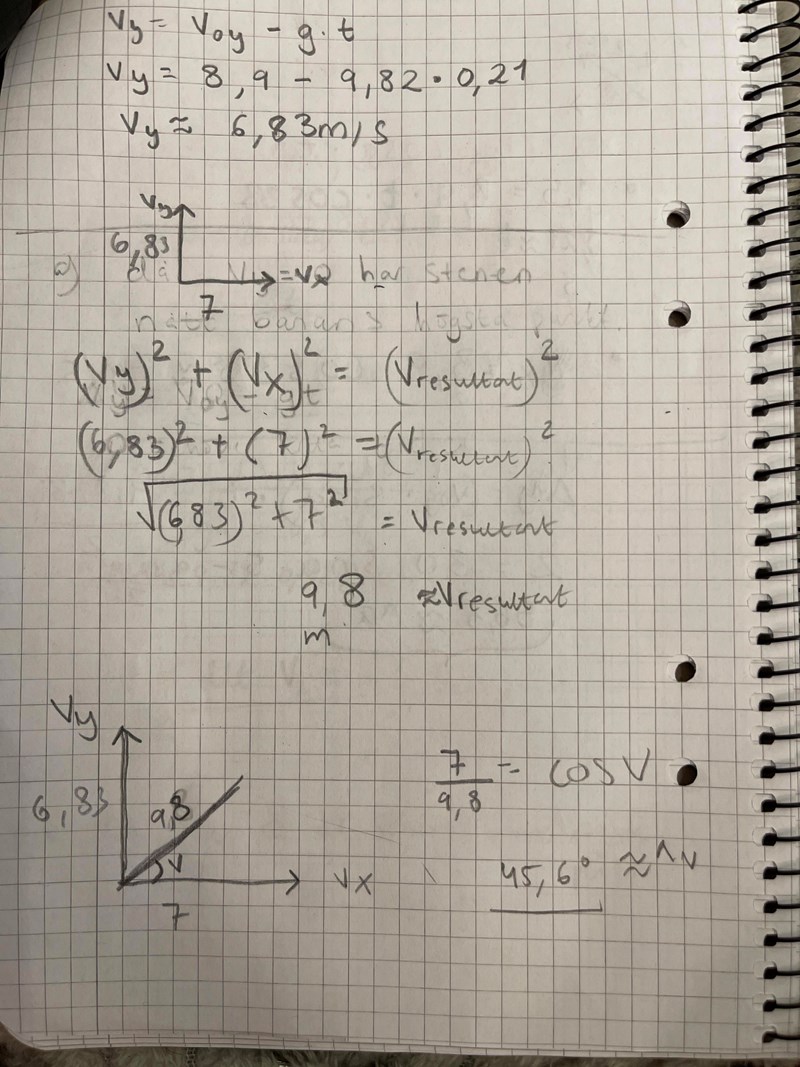 Vy = Voy - g·t
Vy = 8,9 - 9,82·0,21
Vy ≈ 6,83m/s
Vy
6,83
a) då Vy = vx har stenen
7
nått banans högsta punkt
(Vy)² + (Vx)² = (Vresultat)²
(6,83)² + (7)² = (Vresultat)²
√(6,83)² + 7² = Vresultat
9,8 ≈ Vresultat
m
Vy
6,83
9,8
V
Vx
7
7/9,8 = cos V
45,6° ≈ ^V